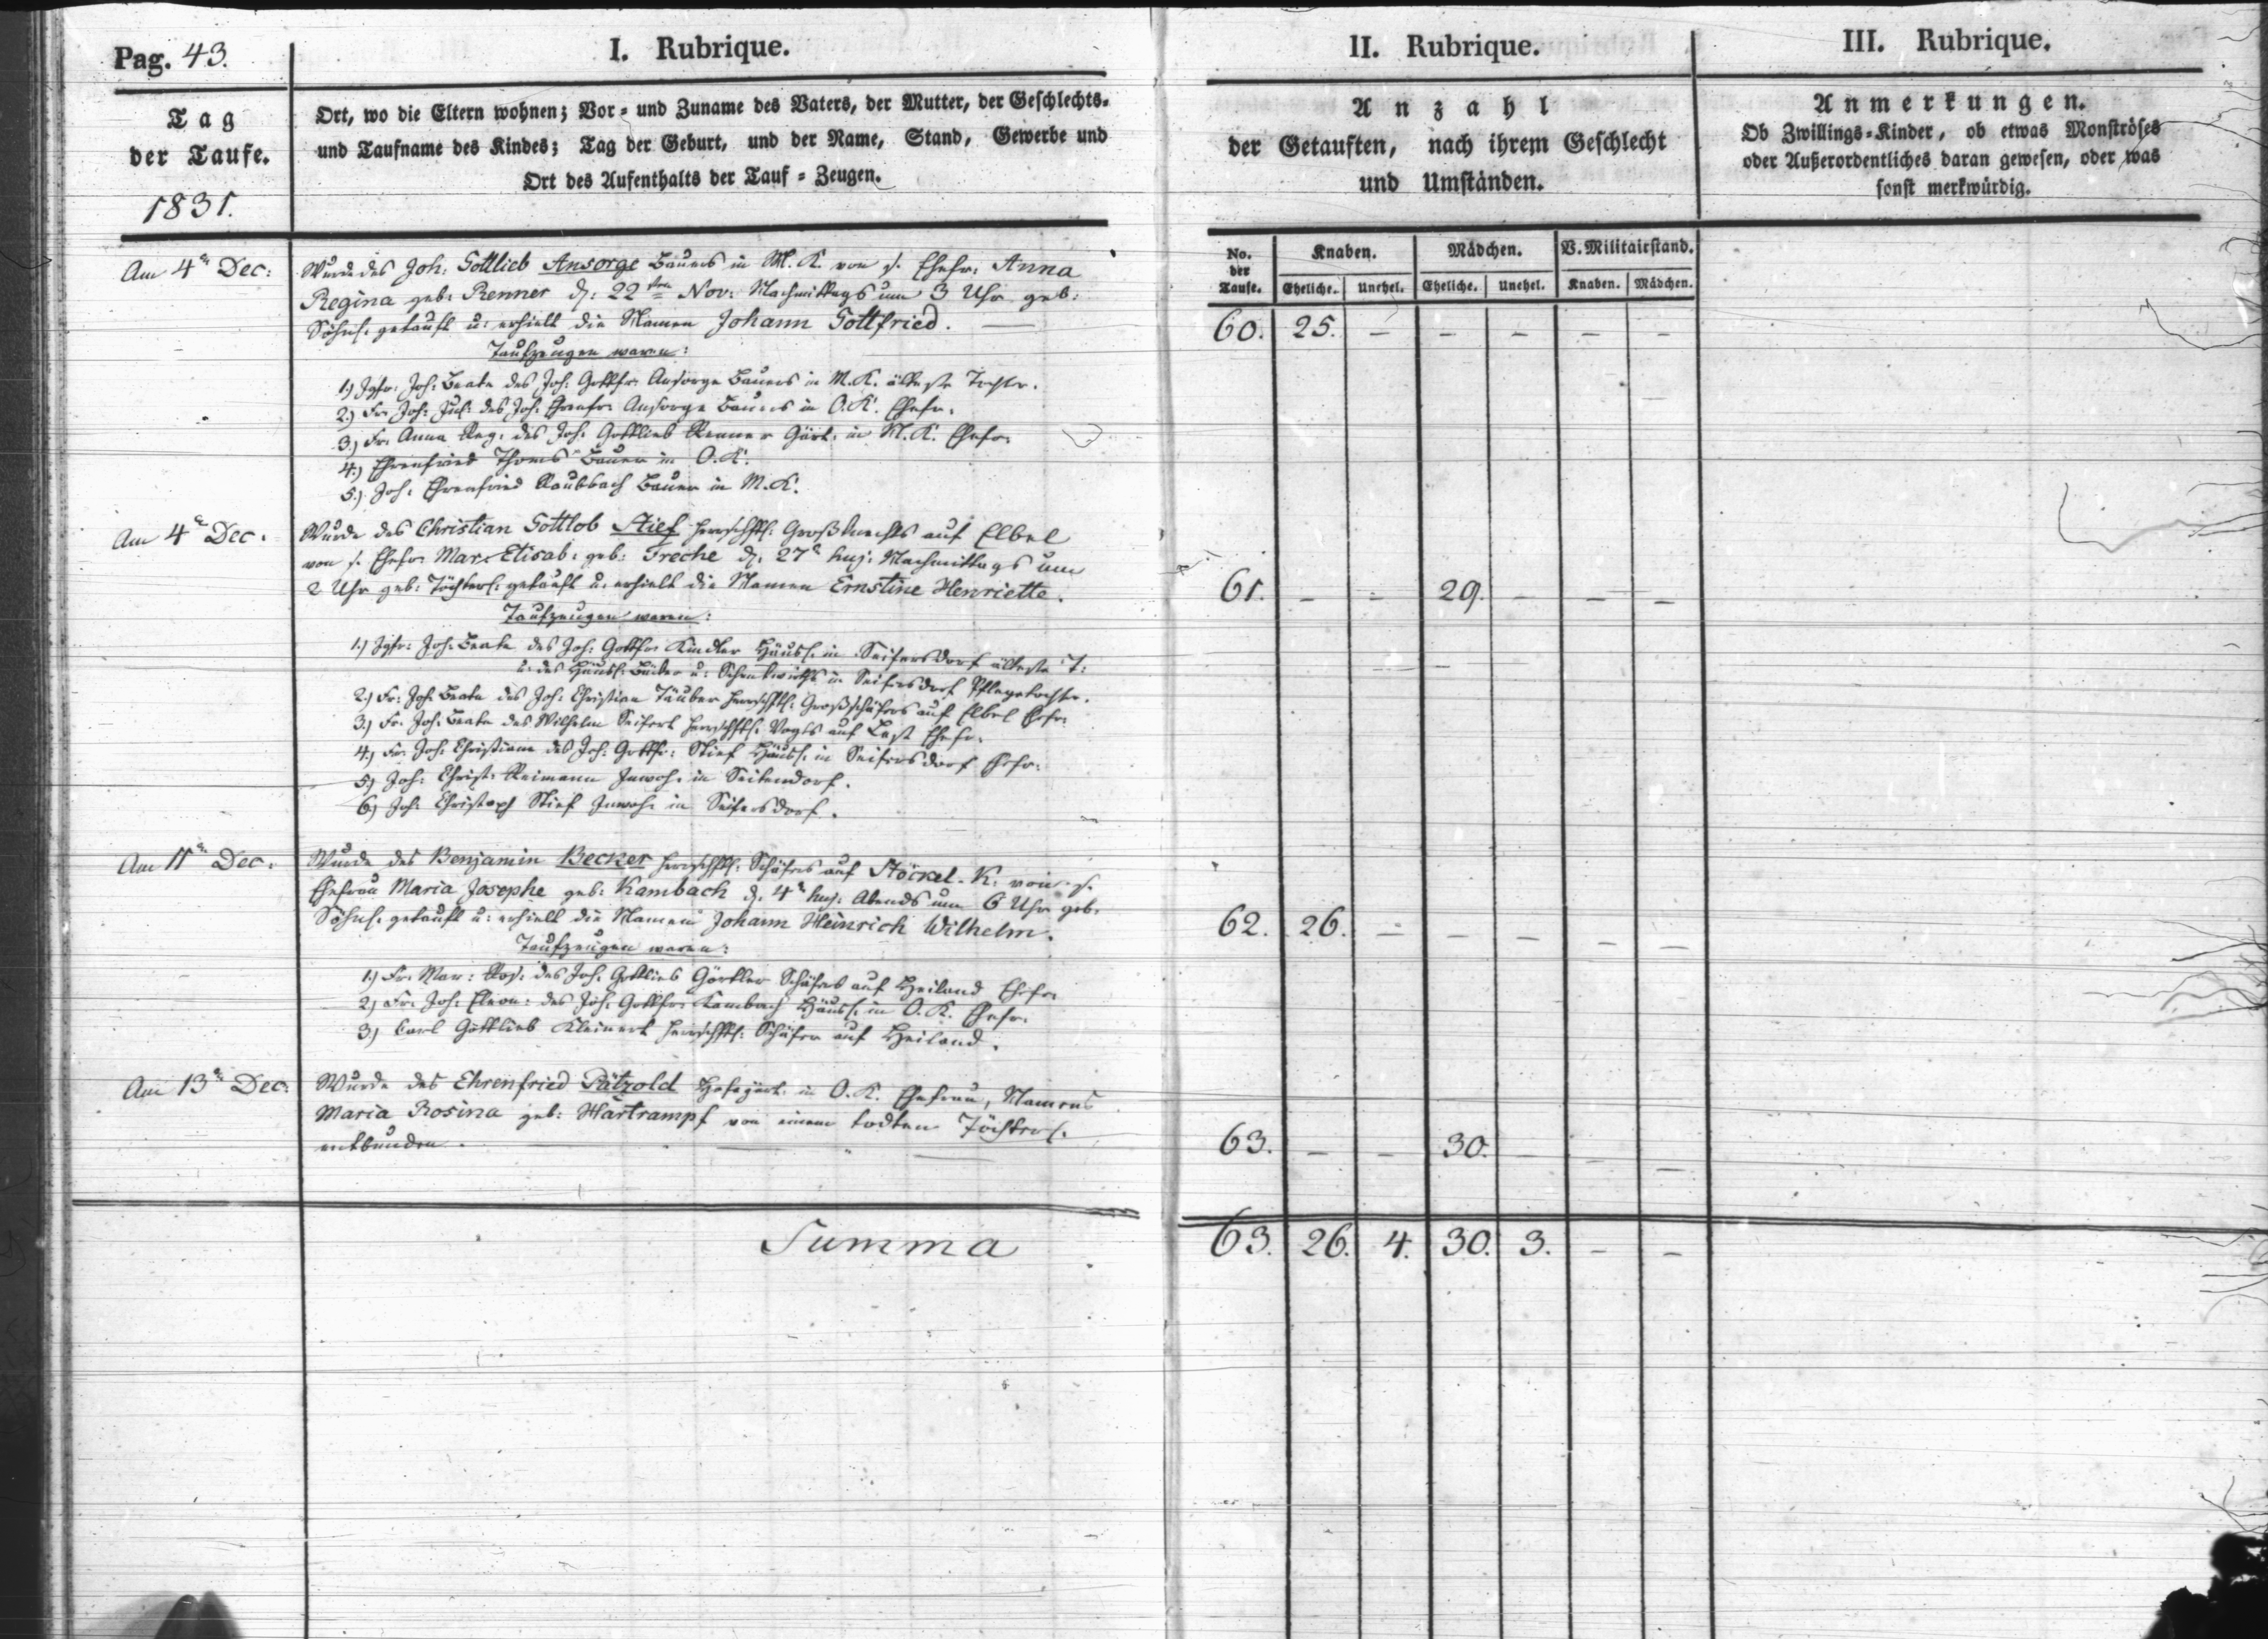 Pag. 43.
I. Rubrique.
Tag
der Taufe.
1831.
Ort, wo die Eltern wohnen; Vor- und Zuname des Vaters, der Mutter, der Geschlechts-
und Taufname des Kindes; Tag der Geburt, und der Name, Stand, Gewerbe und
Ort des Aufenthalts der Tauf-Zeugen.
Am 4n Dec:
Wurde des Joh: Gottlieb Ansorge Bauers in M. K. von s. Ehefr: Anna
Regina geb: Renner d: 22ten Nov: Nachmittags um 3 Uhr geb:
Söhnl. getauft u: erhielt die Namen Johann Gottfried.
Taufzeugen waren:
1.) Jgfr: Joh: Beate des Joh: Gottfr: Ansorge Bauers in M. K. älteste Tochtr.
2.) Fr. Joh: Jul: des Joh: Ehrenfr: Ansorge Bauers in O. K. Ehefr.
3.) Fr. Anna Reg: des Joh: Gottlieb Renner Gärt: in M. K. Ehefr.
4.) Ehrenfried Thoms Bauer in O. K.
5.) Joh: Ehrenfried Raubbach Bauer in M. K.
Am 4n Dec.
Wurde des Christian Gottlob Stief herrschftl: Großknechts auf Elbel
von s. Ehefr. Mar. Elisab: geb: Freche d. 27n huj: Nachmittags um
2 Uhr geb: Töchterl: getauft u. erhielt die Namen Ernstine Henriette.
Taufzeugen waren:
1.) Jgfr: Joh: Beate des Joh: Gottfr: Kindler Häusl. in Seifersdorf älteste T:
u: des Häusl: Bäcker u: Schenkwirths in Seifersdorf Pflegetochtr.
2.) Fr: Joh: Beate des Joh: Christian Täuber herrschftl: Großschäfers auf Elbel Ehefr:
3.) Fr. Joh: Beate des Wilhelm Seifert herrschftl: Vogts auf Ehefr.
4.) Fr: Joh: Christiane des Joh: Gottfr: Stief Häusl. in Seifersdorf Ehefr:
5.) Joh: Christ: Reimann Inwoh: in Seitendorf.
6.) Joh: Christoph Stief Inwoh: in Seifersdorf.
Am 11n Dec.
Wurde des Benjamin Becker herrschftl: Schäfers auf Stöckel-K. von s.
Ehefrau Maria Josephe geb: Kambach d. 4n huj: Abends um 6 Uhr geb.
Söhnl. getauft u: erhielt die Namen Johann Heinrich Wilhelm.
Taufzeugen waren:
1.) Fr. Mar: Ros: des Joh: Gottlieb Görtler Schäfers auf Heiland Ehefr.
2.) Fr. Joh: Eleon: des Joh: Gottfr: Kambach Häusl. in O. K. Ehefr.
3.) Carl Gottlieb Kleinert herrschftl: Schäfer auf Heiland.
Am 13n Dec:
Wurde des Ehrenfried Pätzold Hofegärt: in O. K. Ehefrau, Namens
Maria Rosina geb: Hartrampf von einem todten Töchterl.
entbunden.
Summa
II. Rubrique.
Anzahl
der Getauften, nach ihrem Geschlecht
und Umständen.
No. der Taufe. Knaben. Mädchen. V. Militairstand.
Eheliche. Unehel. Eheliche. Unehel. Knaben. Mädchen.
60. 25. – – – – –
61. – – 29. – – –
62. 26. – – – – –
63. – – 30. – – –
63. 26. 4. 30. 3. – –
III. Rubrique.
Anmerkungen.
Ob Zwillings-Kinder, ob etwas Monströses
oder Außerordentliches daran gewesen, oder was
sonst merkwürdig.